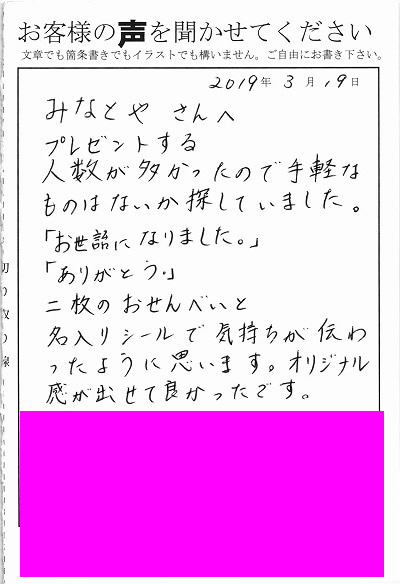 お客様の声を聞かせてください
文章でも箇条書きでもイラストでも構いません。ご自由にお書き下さい。
2019年 3月 19日
みなとや さんへ
プレゼントする
人数が多かったので手軽な
ものはないか探していました。
「お世話になりました。」
「ありがとう。」
二枚のおせんべいと
名入りシールで気持ちが伝わ
ったように思います。オリジナル
感が出せて良かったです。
切り取り線